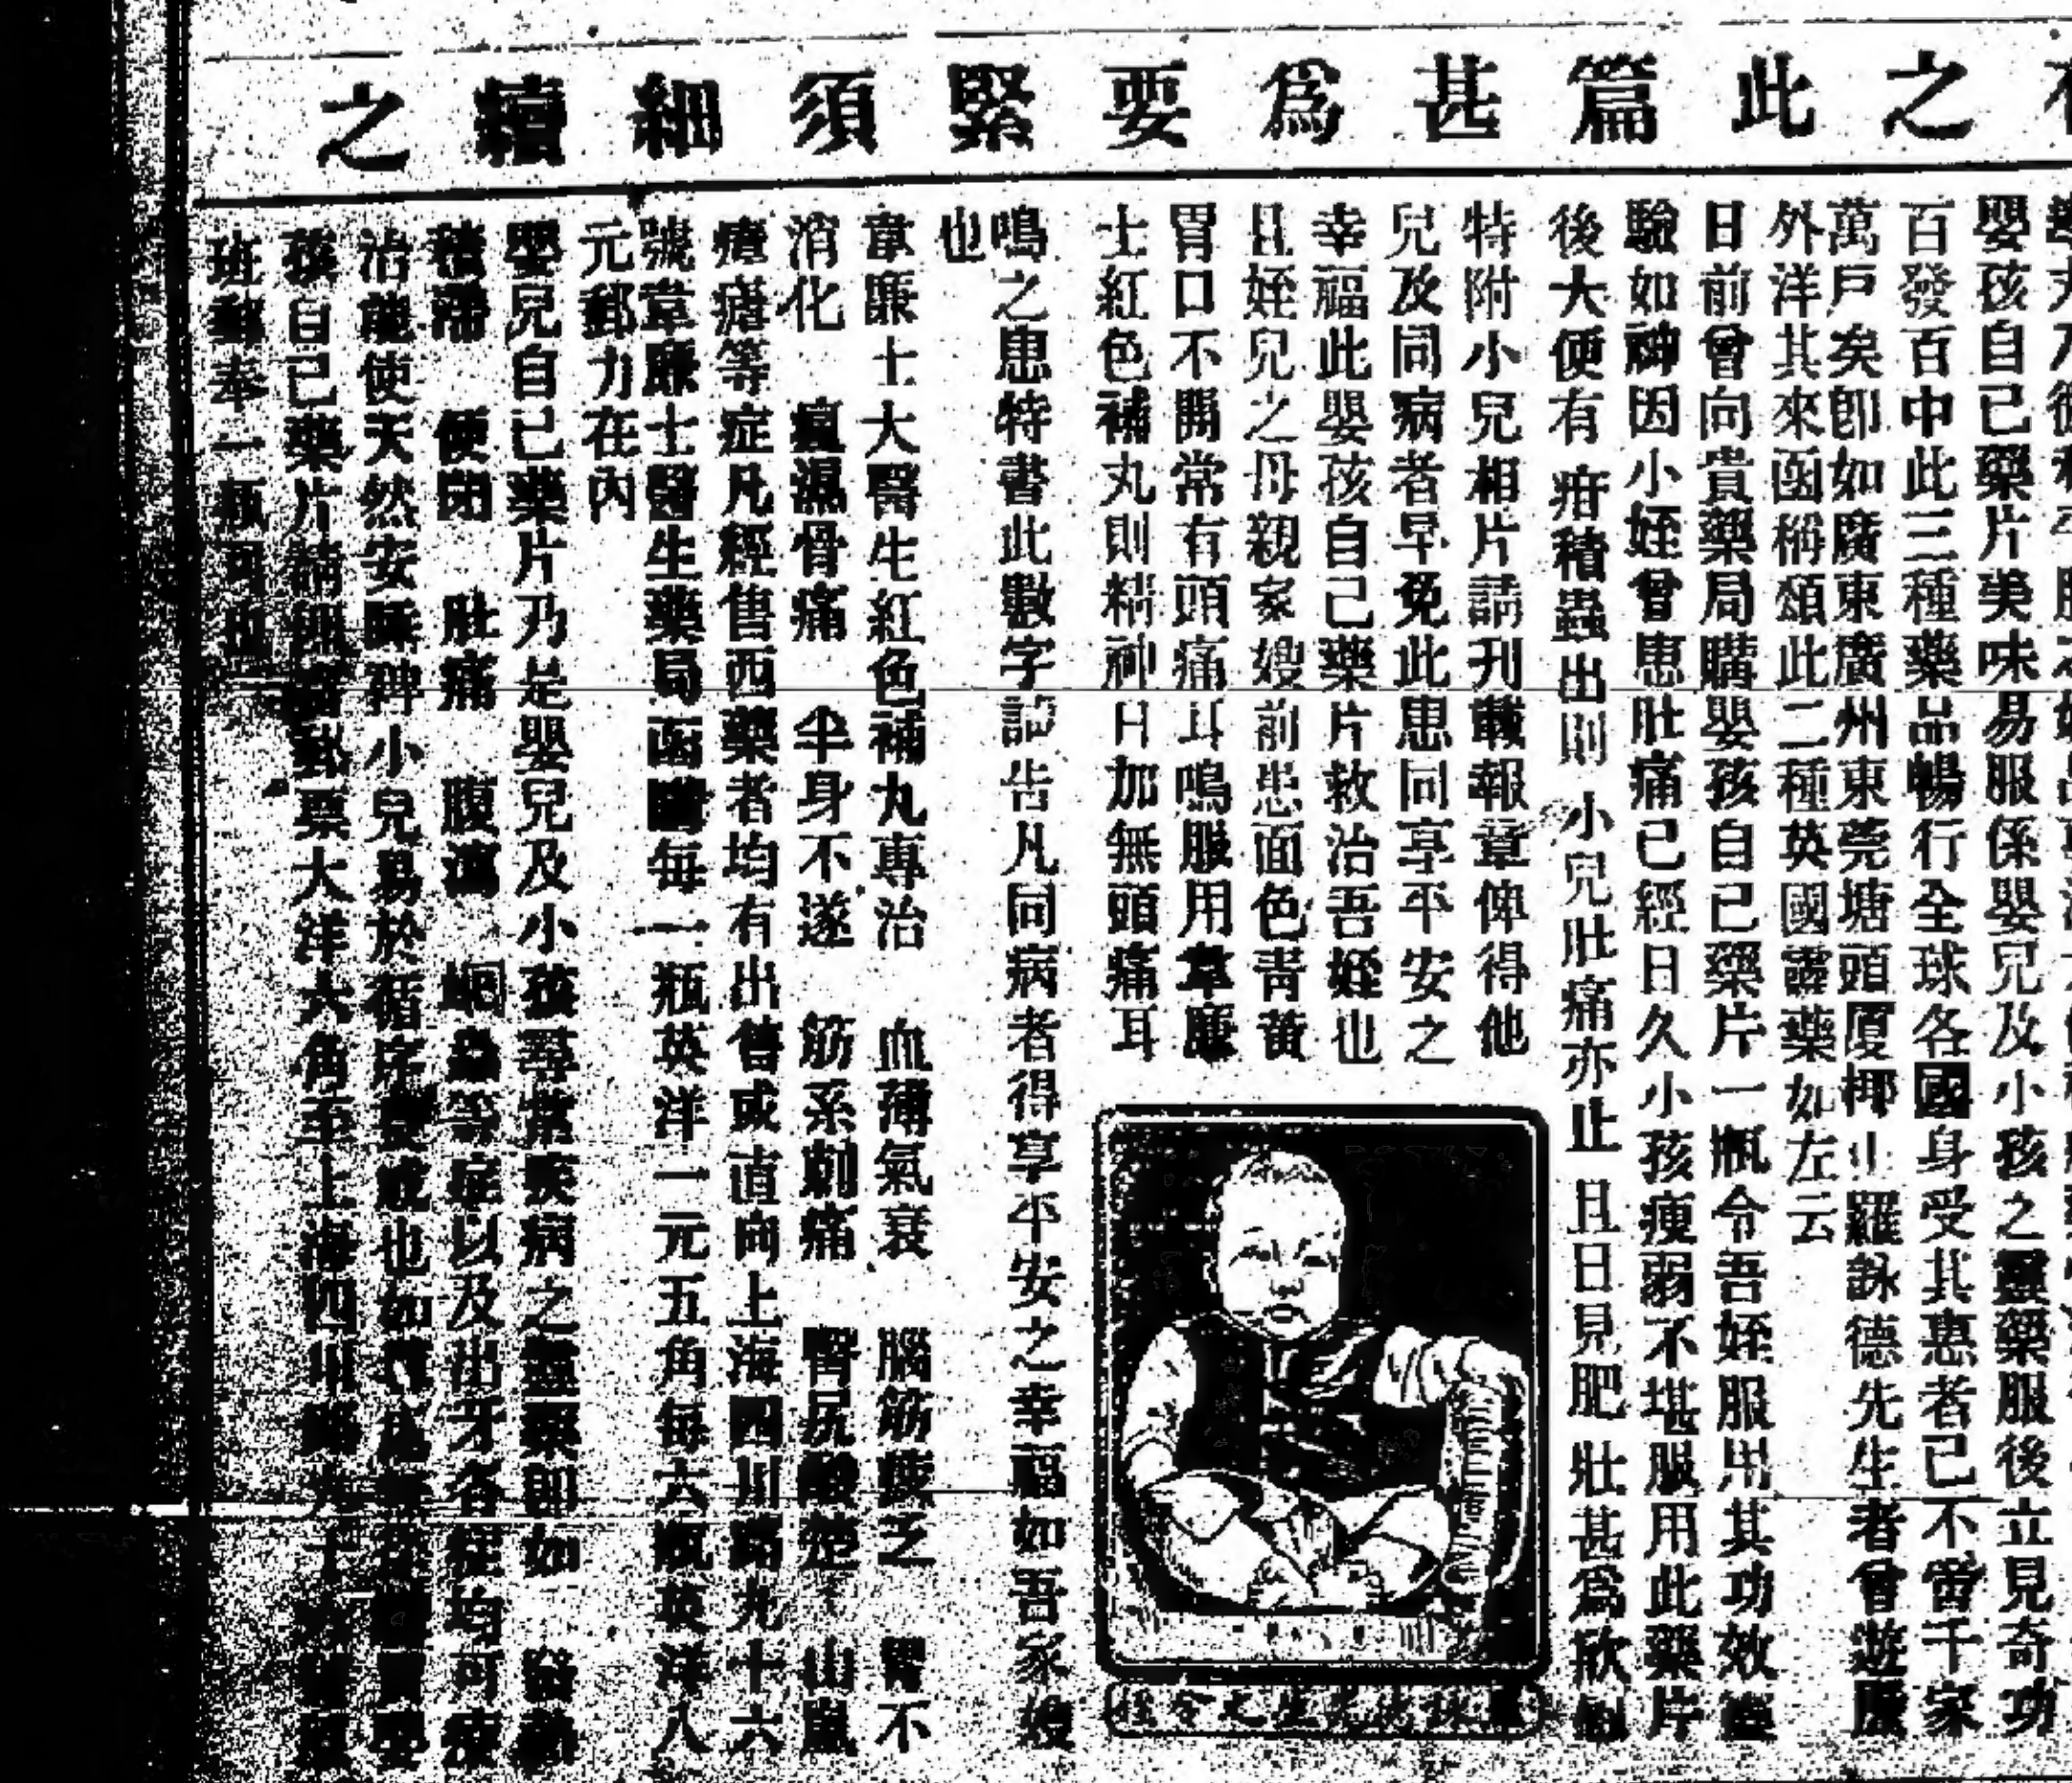 之此篇甚爲要緊須細續之
嬰孩自己藥片美味易服係嬰兒及小孩之靈藥服後立見奇功
百發百中此三種藥品暢行全球各國身受其惠者已不啻千家
萬戶矣卽如廣東廣州東莞塘頭厦椰山羅詠德先生者曾遊歷
外洋其來函稱頌此二種英國靈藥如左云
日前曾向貴藥局購嬰孩自已藥片一瓶令吾姪服用其功效經
驗如神因小姪曾患肚痛已經日久小孩瘦弱不堪服用此藥片
後大便有疳積蟲出則小兒肚痛亦止且日見肥壯甚爲欣慰
特附小兒相片請刊載報章俾得他
兒及同病者早免此患同享平安之
幸福此嬰孩自己藥片救治吾姪也
且姪兒之母親家嫂前患面色靑黃
胃口不開常有頭痛耳鳴服用韋廉
士紅色補丸則精神日加無頭痛耳
鳴之患特書此數字記告凡同病者得享平安之幸福如吾家嫂
也
韋廉士大醫生紅色補丸專治 血薄氣衰 腦筋疲乏 胃不
消化 瘋濕骨痛 半身不遂 筋系刺痛 臀尻酸楚 山嵐
瘴瘧等症凡經售西藥者均有出售或直向上海四川路九十六
號韋廉士醫生藥局函購每一瓶英洋一元五角每六瓶英洋八
元郵力在內
嬰兒自已藥片乃是嬰兒及小孩尋常疾病之靈藥卽如
積滯 便閉 肚痛 腹瀉 等症以及出牙各症均可療
治能使天然安睡俾小兒易於循序 也如
孩自己藥片 郵票大洋六角至上海四川路九十六
班郵奉一瓶可也